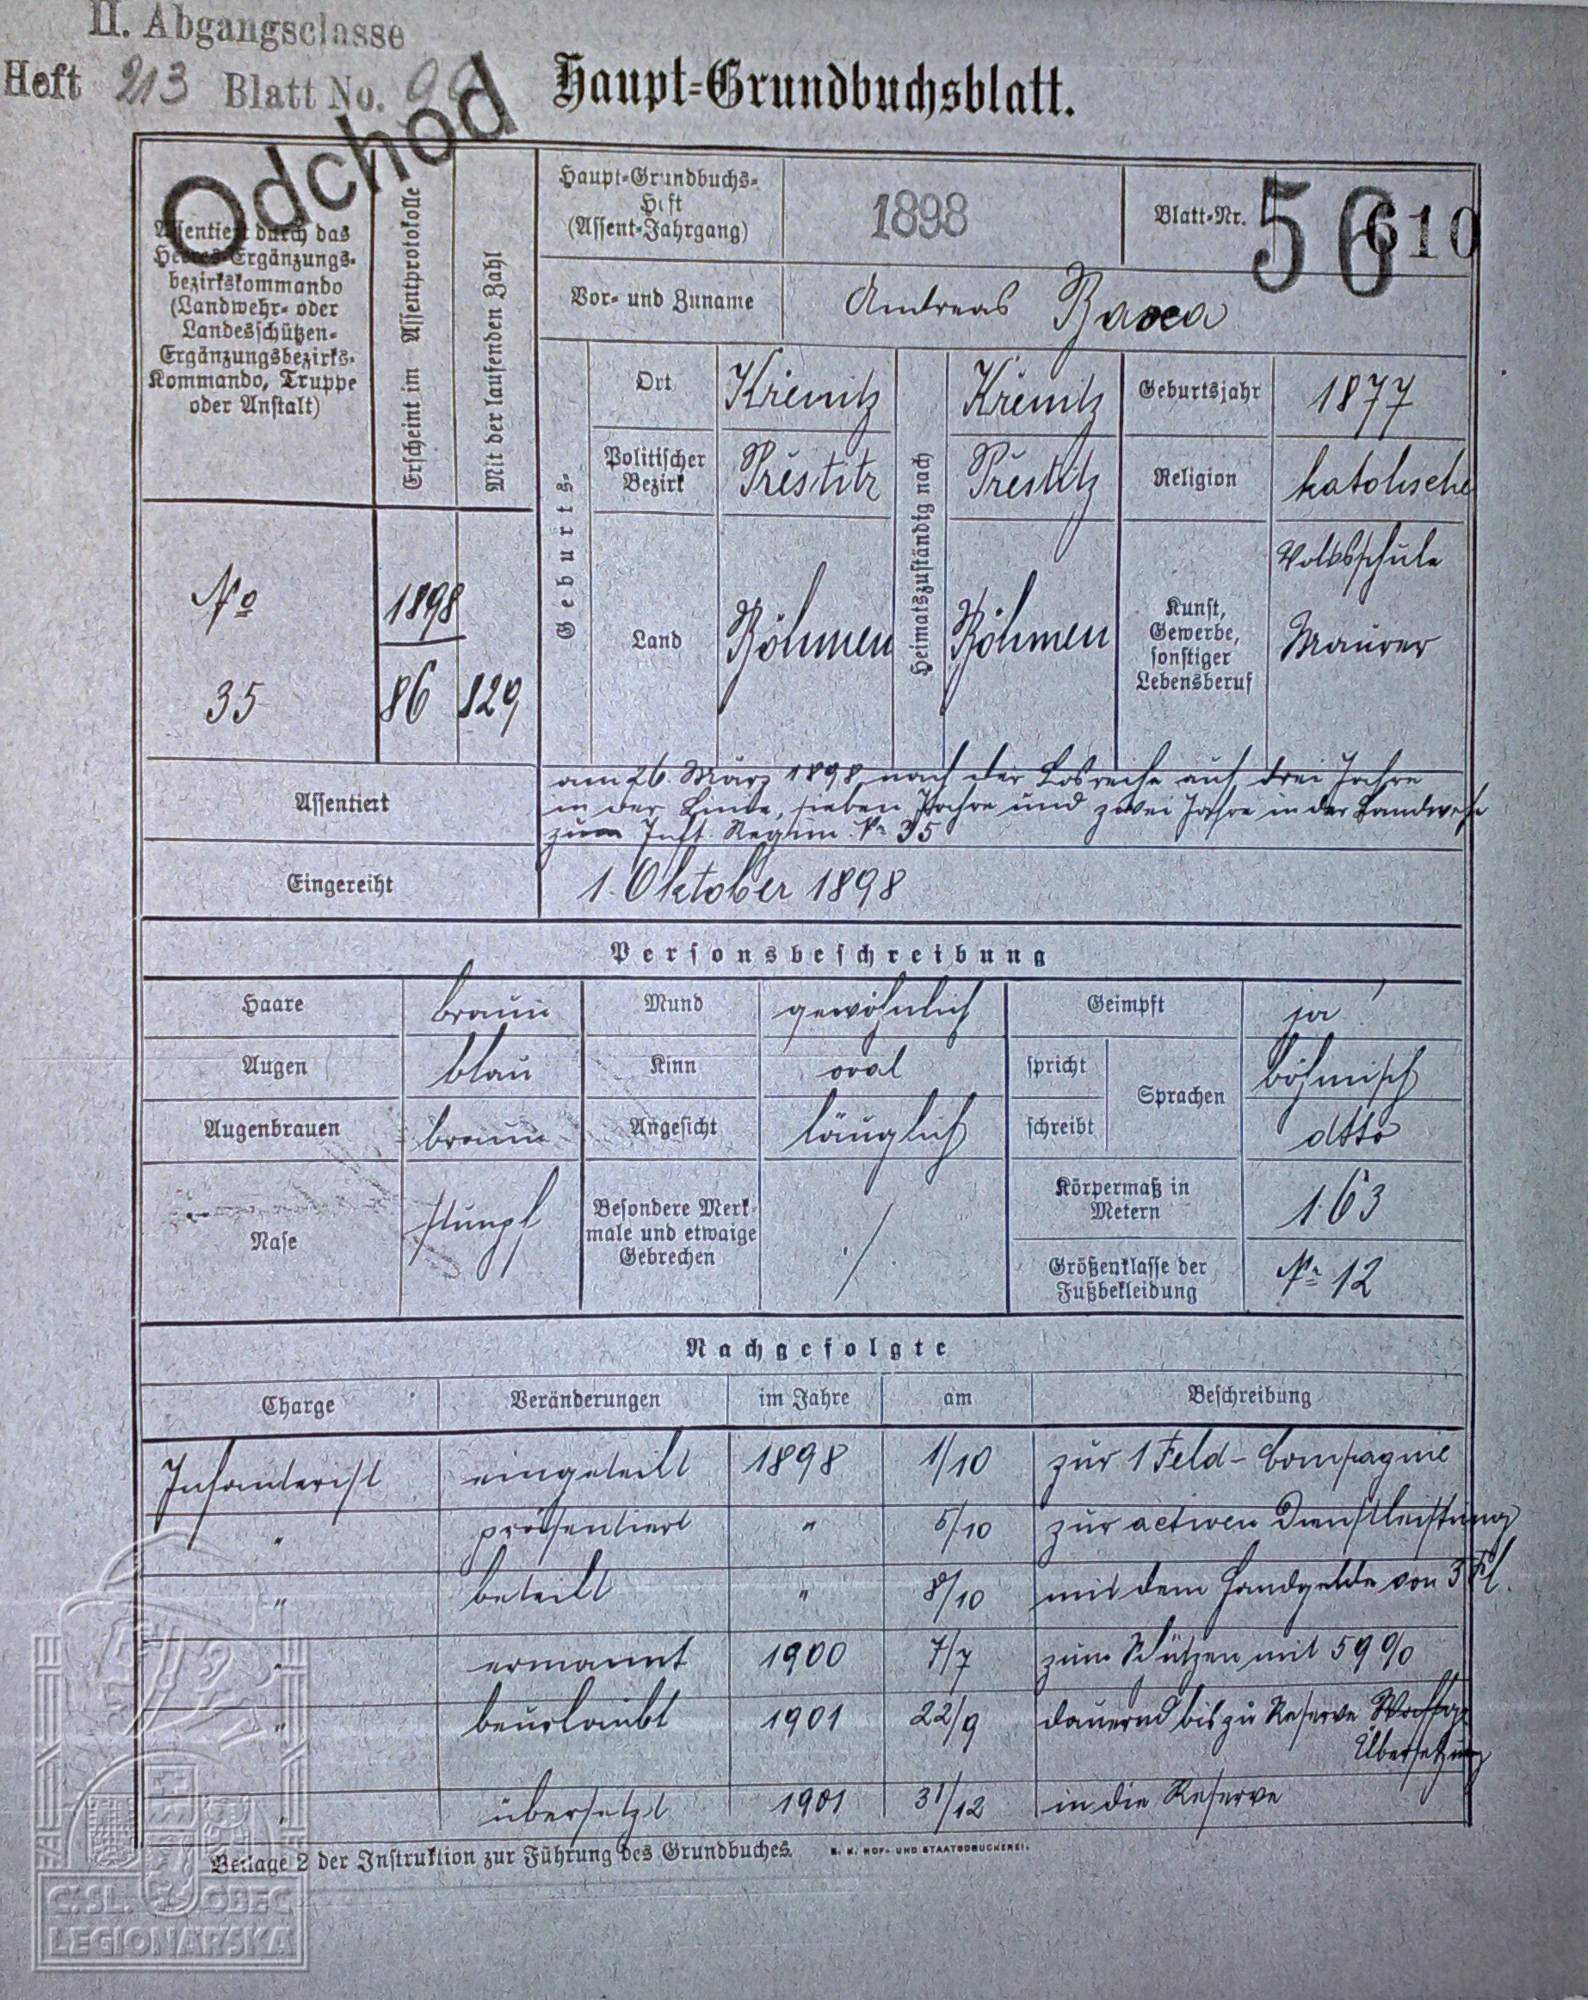 II. Abgangsclasse
Heft 213 Blatt No.
Odchod
Haupt-Grundbuchsblatt.
Assentiert durch das
Heeres-Ergänzungs-
bezirkskommando
(Landwehr- oder
Landesschützen-
Ergänzungsbezirks-
Kommando, Truppe
oder Anstalt)
Erscheint im Assentprotokolle
Mit der laufenden Zahl
No
35
1898
86
129
Haupt-Grundbuchs-
Heft
(Assent-Jahrgang)
1898
Blatt-Nr.
56
610
Vor- und Zuname
Andreas Baxa
Geburts-
Ort
Křenitz
Politischer
Bezirk
Přestitz
Land
Böhmen
Heimatszuständig nach
Křenitz
Přestitz
Böhmen
Geburtsjahr
1877
Religion
katolische
Kunst,
Gewerbe,
sonstiger
Lebensberuf
Volksschule
Maurer
Assentiert
am 26. März 1898 nach der Losreihe auf drei Jahre
in der Linie, sieben Jahre und zwei Jahre in der Landwehr
zum Inft. Regim. Nr 35
Eingereiht
1. Oktober 1898
Personsbeschreibung
Haare
braun
Mund
gewöhnlich
Geimpft
ja
Augen
blau
Kinn
oval
spricht
Sprachen
böhmisch
Augenbrauen
braun
Angesicht
länglich
schreibt
dtto
Nase
stumpf
Besondere Merk-
male und etwaige
Gebrechen
/
Körpermaß in
Metern
1·63
Größenklasse der
Fußbekleidung
Nr 12
Nachgefolgte
Charge Veränderungen im Jahre am Beschreibung
Infanterist eingeteilt 1898 1/10 zur 1 Feld-Compagnie
" präsentiert " 5/10 zur activen Dienstleistung
" beteilt " 8/10 mit dem Handgelde von 3 Fl.
" ernannt 1900 7/7 zum Schützen mit 59%
" beurlaubt 1901 22/9 dauernd bis zu Reserve
Übersetzung
" übersetzt 1901 31/12 in die Reserve
Beilage 2 der Instruktion zur Führung des Grundbuches. K. K. HOF- UND STAATSDRUCKEREI.
ČSL. OBEC
LEGIONÁŘSKÁ